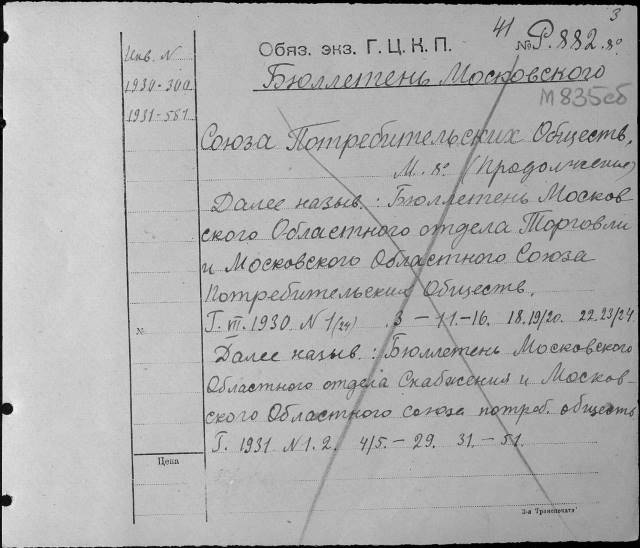 3
41
Обяз. экз. Г. Ц. К. П. № Р.882. 8°
Инв. N
1930-300
1931-581
Бюллетень Московского
М 835сб
Союза Потребительских Обществ.
М. 8° (Продолжение)
Далее назыв.: Бюллетень Москов-
ского Областного отдела Торговли
и Московского Областного Союза
Потребительских Обществ.
Г. VII. 1930 N 1(24) 3 - 11.-16. 18.19/20. 22.23/24
№
Далее назыв.: Бюллетень Московского
Областного отдела Снабжения и Москов-
ского Областного союза потреб. обществ
Г. 1931 N 1. 2. 4/5.- 29. 31.- 51.
Цена
3-я Транспечать